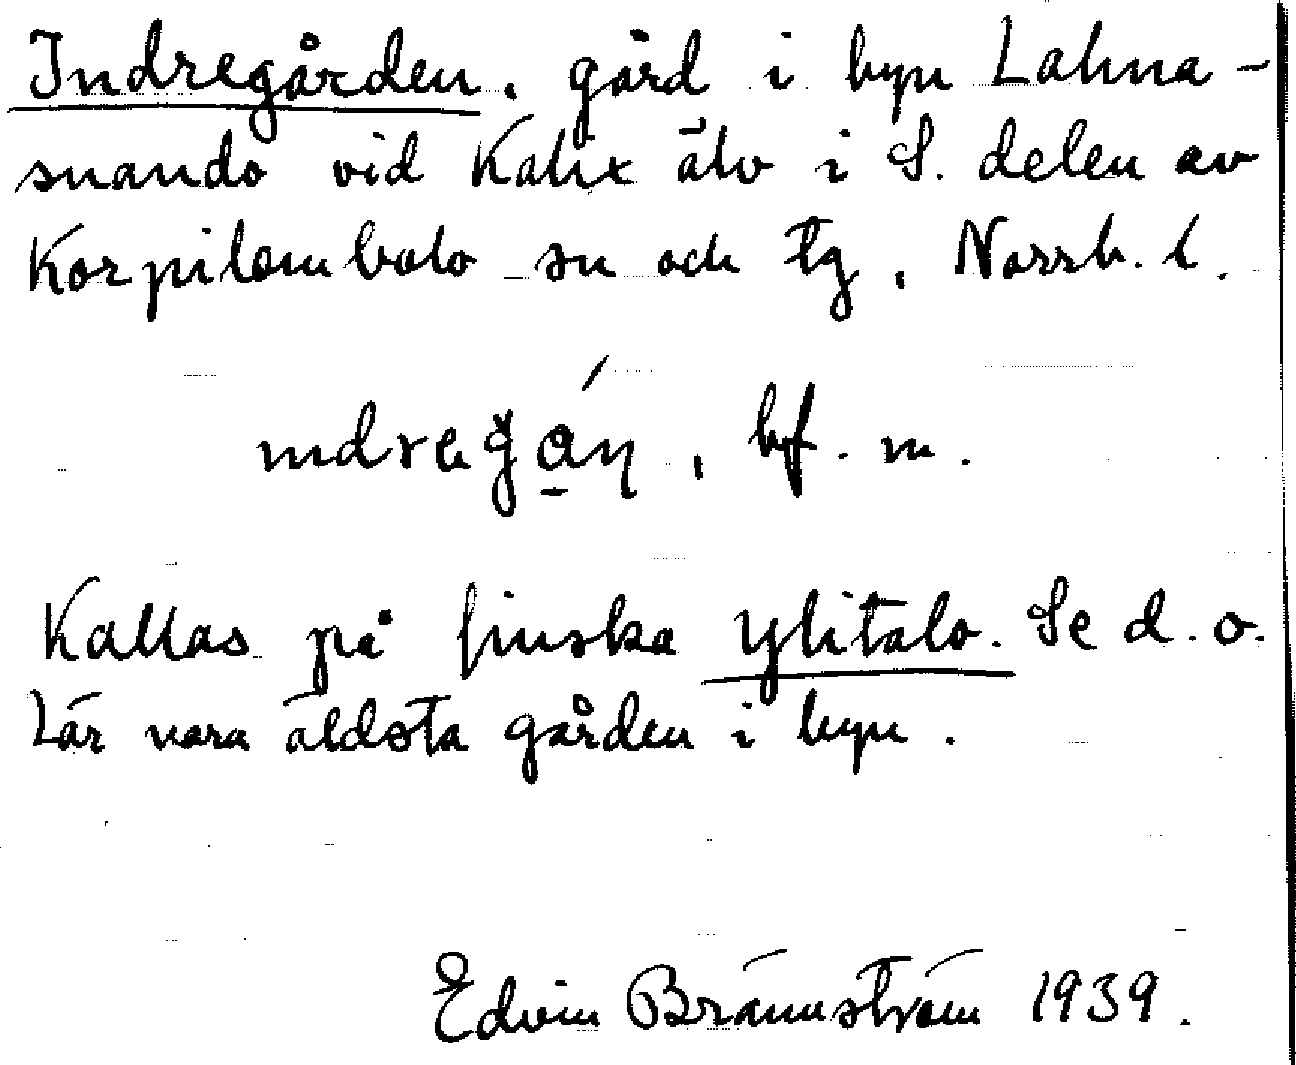 Indregården, gård i byn Lahna-
snando vid Kalix älv i S. delen av
Korpilombolo sn och tg, Norrb. l.
ındregán, bf. m.
Kallas på finska Ylitalo. Se d. o.
Lär vara äldsta gården i byn.
Edvin Brännström 1939.